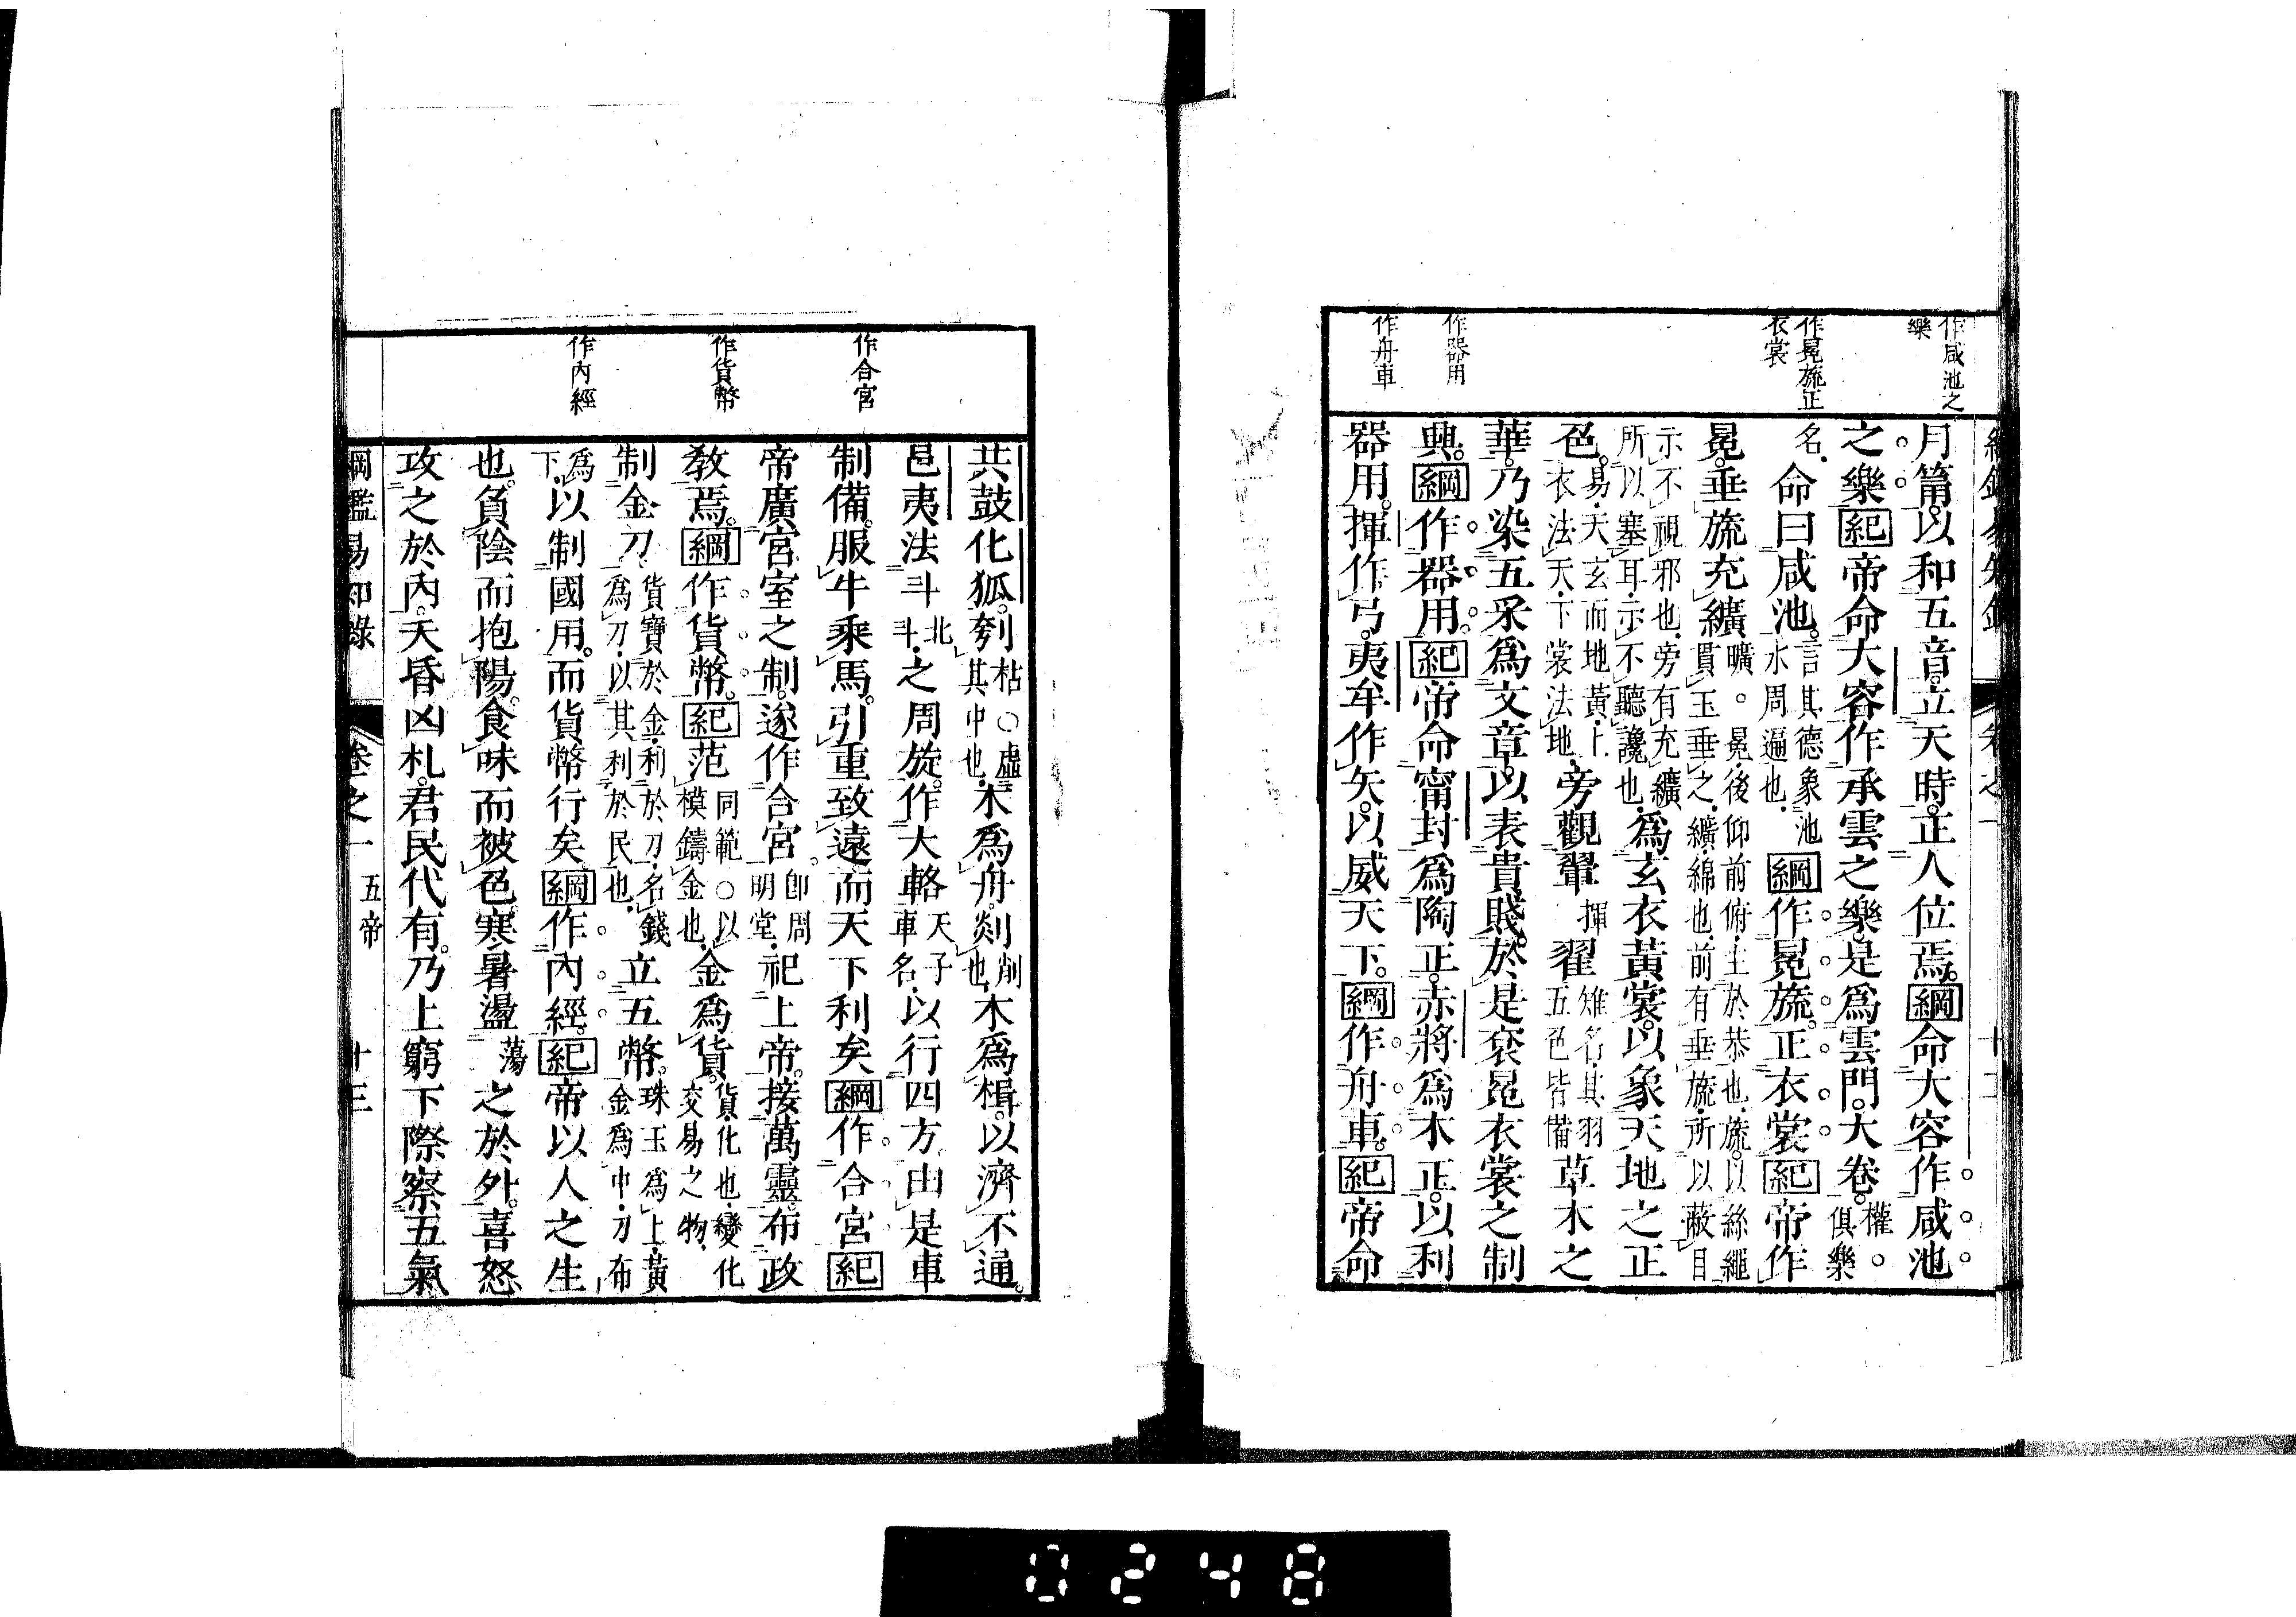 作咸池之
樂
作冕旒正
衣裳
作器用
作舟車
月筩以和五音立天時正人位焉綱命大容作咸池
之樂紀帝命大容作承雲之樂是爲雲門大卷權。俱樂
名命曰咸池言其德象池水周遍也綱作冕旒正衣裳紀帝作
冕垂旒充纊曠。冕後仰前俯主於恭也旒以絲繩貫玉垂之纊綿也前有垂旒所以蔽目
示不視邪也旁有充纊所以塞耳示不聽讒也爲玄衣黃裳以象天地之正
色易天玄而地黃上衣法天下裳法地旁觀翬揮翟雉名其羽五色皆備草木之
華乃染五采爲文章以表貴賤於是袞冕衣裳之制
興綱作器用紀帝命甯封爲陶正赤將爲木正以利
器用揮作弓夷牟作矢以威天下綱作舟車紀帝命
作合宮
作貨幣
作內經
共鼓化狐刳枯○虛其中也木爲舟剡削也木爲楫以濟不通
邑夷法斗北斗之周旋作大輅天子車名以行四方由是車
制備服牛乘馬引重致遠而天下利矣綱作合宮紀
帝廣宮室之制遂作合宮卽周明堂祀上帝接萬靈布政
敎焉綱作貨幣紀范同範○以模鑄金也金爲貨貨化也變化交易之物
制金刀貨寶於金利於刀名錢爲刀以其利於民也立五幣珠玉爲上黃金爲中刀布
爲下以制國用而貨幣行矣綱作內經紀帝以人之生
也負陰而抱陽食味而被色寒暑盪蕩之於外喜怒
攻之於內夭昏凶札君民代有乃上窮下際察五氣
綱鑑易知錄 卷之一 五帝 十三
0248